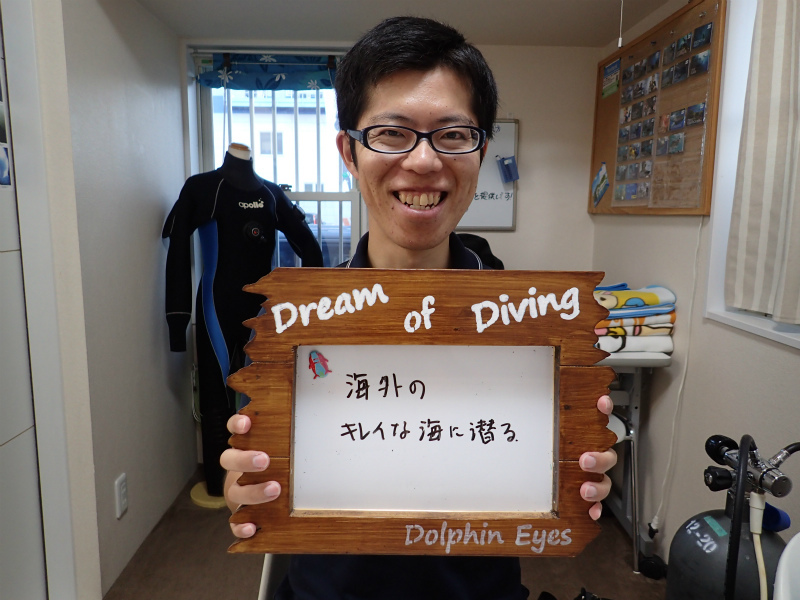 apollo
Dream of Diving
海外の
キレイな海に潜る。
Dolphin Eyes
12-20